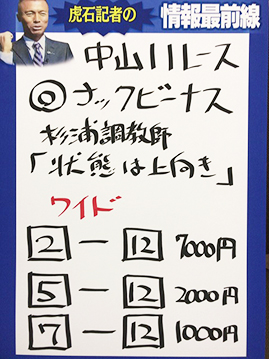 虎石記者の
情報最前線
中山11レース
◎ナックビーナス
杉浦調教師
「状態は上向き」
ワイド
2-12 7000円
5-12 2000円
7-12 1000円